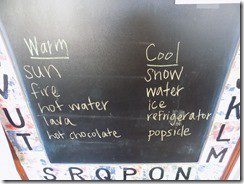 Warm
sun
fire
hot water
lava
hot chocolate
Cool
snow
water
ice
refrigerator
popsicle
U
T
S R Q P O N
M
L
K